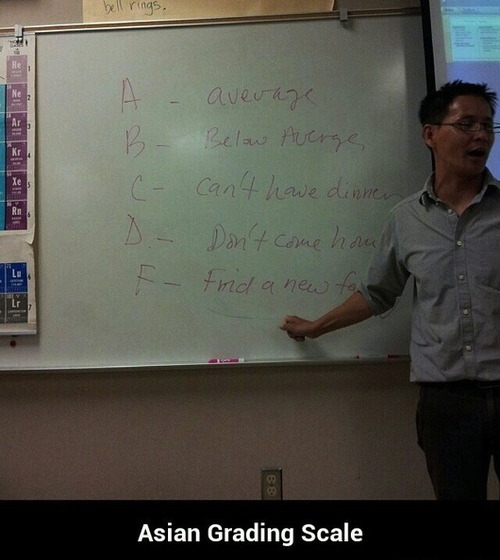 bell rings.
He
Ne
Ar
Kr
Xe
Rn
Lu
Lr
A - average
B - Below Average
C - can't have dinner
D. - Don't come hom
F - Find a new fa
Asian Grading Scale